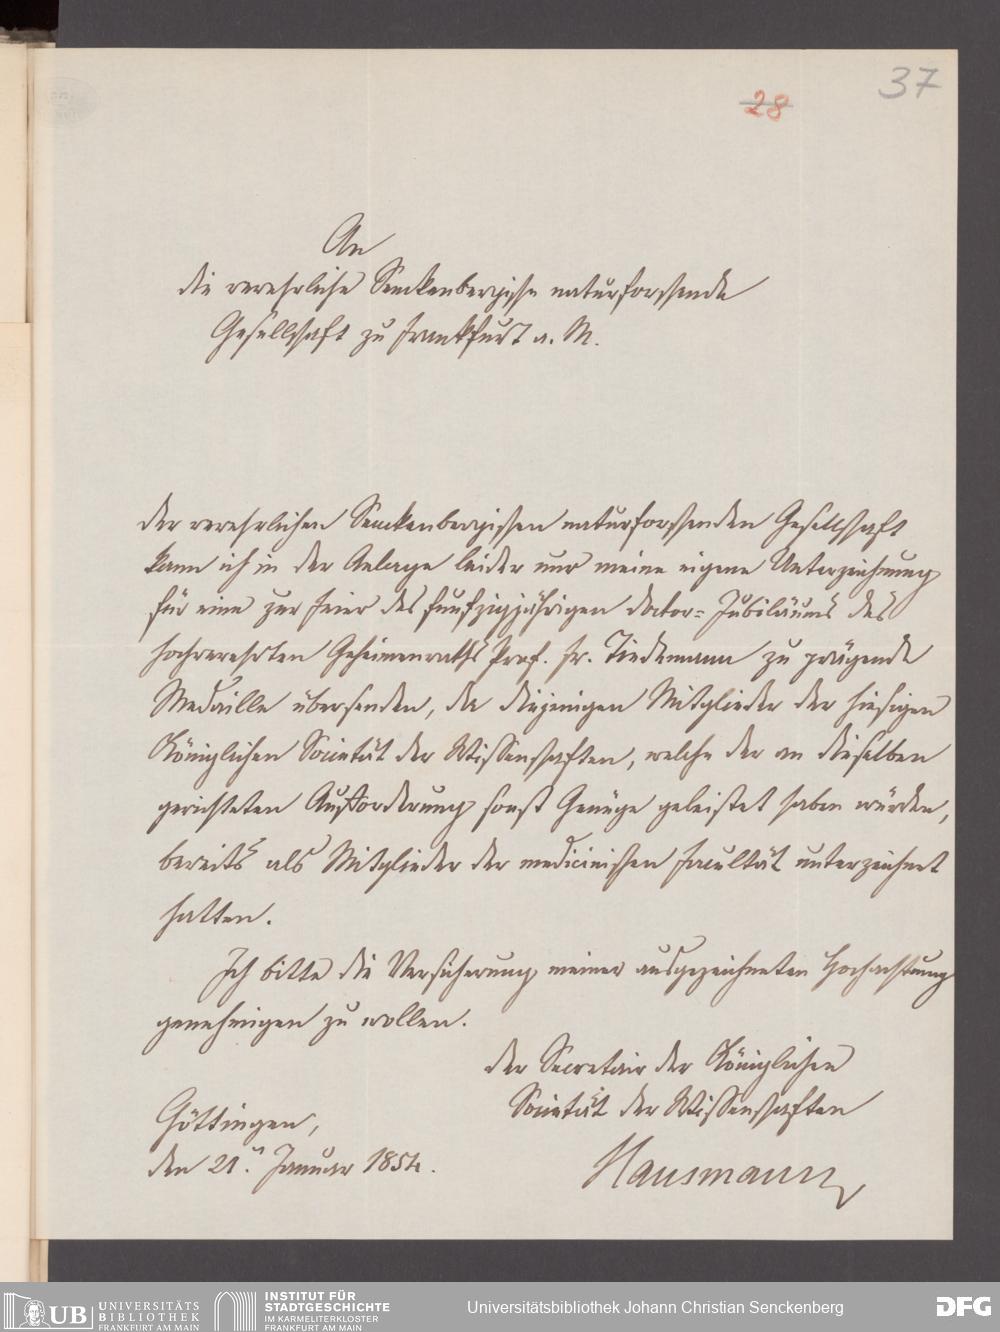 37
28
An
die verehrliche Senckenbergische naturforschende
Gesellschaft zu Frankfurt a. M.
Der verehrlichen Senckenbergischen naturforschenden Gesellschaft
kann ich in der Anlage leider nur meine eigene Unterzeichnung
für eine zur Feier des funfzigjährigen Doctor-Jubiläums des
hochverehrten Geheimenraths Prof. Fr. Tiedemann zu prägende
Medaille übersenden, da diejenigen Mitglieder der hiesigen
Königlichen Societät der Wissenschaften, welche der an dieselben
gerichteten Aufforderung sonst Genüge geleistet haben würden,
bereits als Mitglieder der medicinischen Facultät unterzeichnet
hatten.
Ich bitte die Versicherung meiner ausgezeichneten Hochachtung
genehmigen zu wollen.
Der Secretair der Königlichen
Societät der Wissenschaften
Göttingen,
den 21.n Januar 1854.
Hausmann
UB UNIVERSITÄTS
BIBLIOTHEK
FRANKFURT AM MAIN
INSTITUT FÜR
STADTGESCHICHTE
IM KARMELITERKLOSTER
FRANKFURT AM MAIN
Universitätsbibliothek Johann Christian Senckenberg
DFG